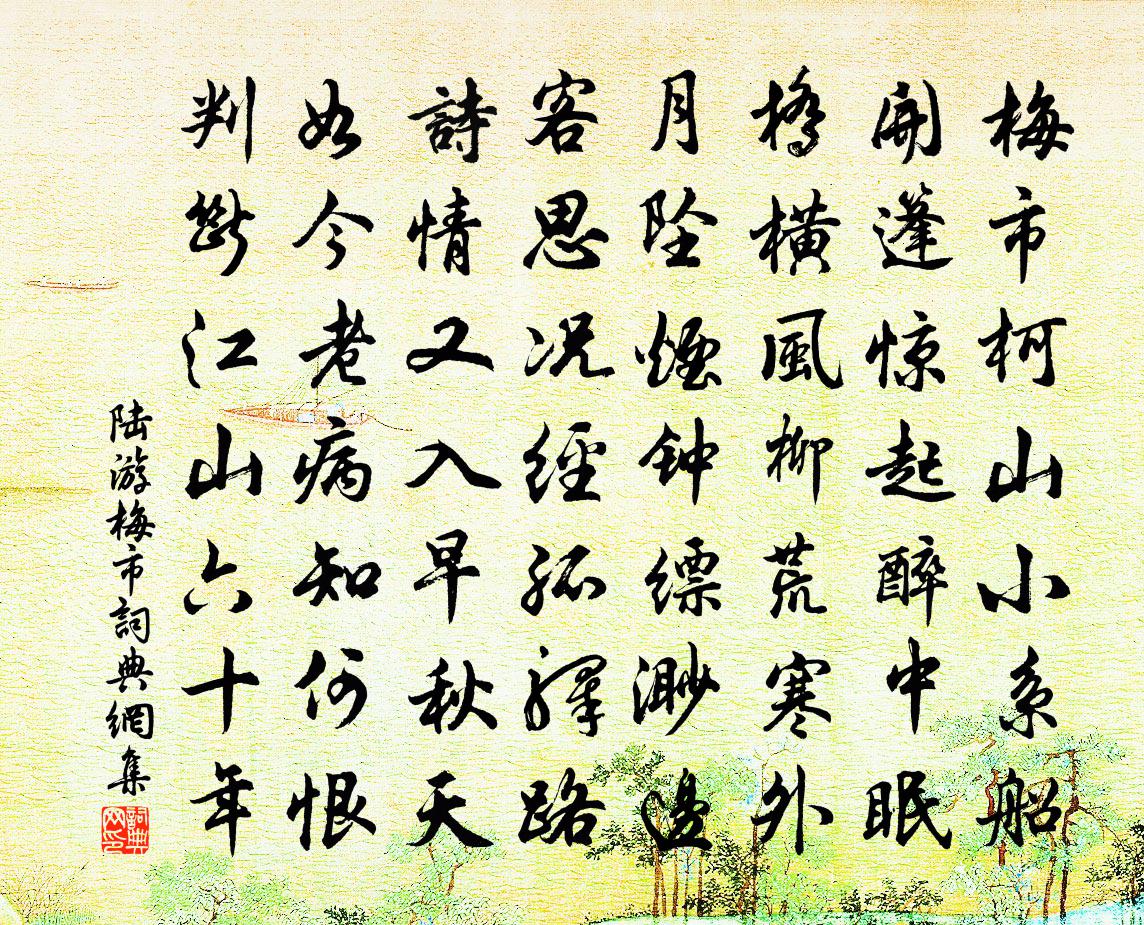 梅市柯山小系船
開蓬惊起醉中眠
橋横風柳荒寒外
月坠煙钟缥渺邊
客思况經孤驛路
詩情又入早秋天
如今老病知何恨
判斷江山六十年
陆游梅市詞典網集
詞典网印